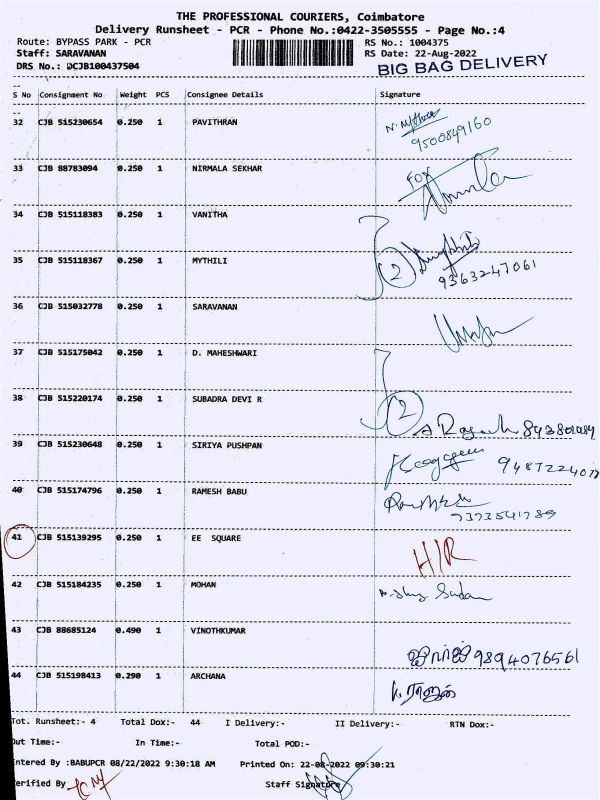 THE PROFESSIONAL COURIERS, Coimbatore
Delivery Runsheet - PCR - Phone No.:0422-3505555 - Page No.:4
Route: BYPASS PARK - PCR RS No.: 1004375
Staff: SARAVANAN RS Date: 22-Aug-2022
DRS No.: DCJB100437504 BIG BAG DELIVERY
S No Consignment No Weight PCS Consignee Details Signature
32 CJB 515230654 0.250 1 PAVITHRAN
9500849160
33 CJB 88783094 0.250 1 NIRMALA SEKHAR
FOX
34 CJB 515118383 0.250 1 VANITHA
35 CJB 515118367 0.250 1 MYTHILI 2
9363247061
36 CJB 515032778 0.250 1 SARAVANAN
37 CJB 515175042 0.250 1 D. MAHESHWARI
38 CJB 515220174 0.250 1 SUBADRA DEVI R 2
39 CJB 515230648 0.250 1 SIRIYA PUSHPAN
40 CJB 515174796 0.250 1 RAMESH BABU
41 CJB 515139295 0.250 1 EE SQUARE H/R
42 CJB 515184235 0.250 1 MOHAN
43 CJB 88685124 0.490 1 VINOTHKUMAR 9894076561
44 CJB 515198413 0.290 1 ARCHANA
Tot. Runsheet:- 4 Total Dox:- 44 I Delivery:- II Delivery:- RTN Dox:-
Out Time:- In Time:- Total POD:-
Entered By :BABUPCR 08/22/2022 9:30:18 AM Printed On: 22-08-2022 09:30:21
Verified By Staff Signature